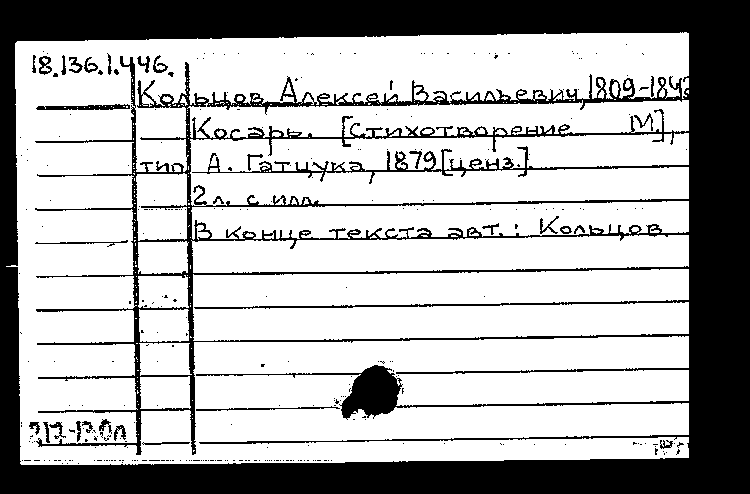 18.136.1.446.
Кольцов, Алексей Васильевич, 1809-1842
Косарь. [Стихотворение М.],
тип. А. Гатцука, 1879 [ценз.].
2л. с илл.
В конце текста авт.: Кольцов.